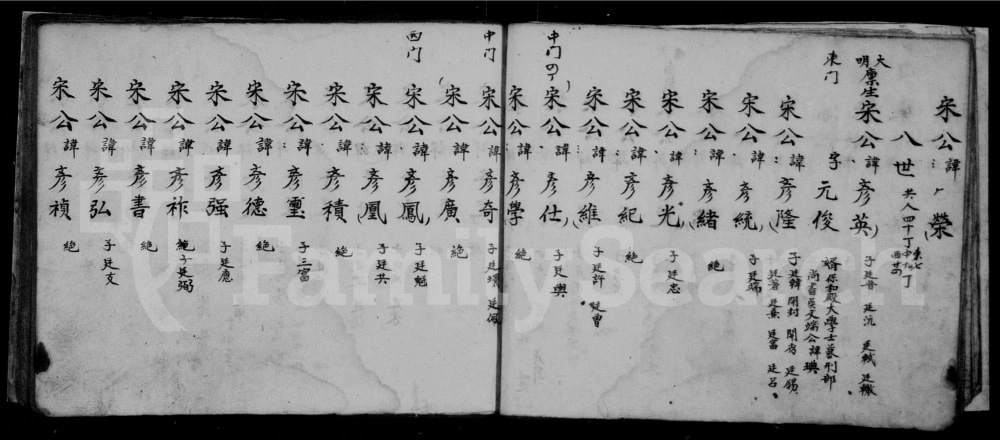 宋公諱榮
八世 共八四十丁 東七 中九丁 西廿四
大明廩生宋公諱彥英 子廷晉 廷沆 廷軾 廷轍
字元俊 婿保和殿大學士兼刑部尚書吳文端公諱琠
東门
宋公諱彥隆 子廷韓 開封 開富 廷錫 廷蓍 廷熹 廷富 廷呂
宋公諱彥統 子廷端
宋公諱彥緒 絶
宋公諱彥光 子廷忠
宋公諱彥紀 絶
宋公諱彥維 子廷許 廷曾
中门
宋公諱彥仕 子廷輿
宋公諱彥學 絶
中门
宋公諱彥奇 子廷環 廷佩
宋公諱彥廣 絶
西门
宋公諱彥鳳 子廷魁
宋公諱彥凰 子廷共
宋公諱彥積 絶
宋公諱彥璽 子三富
宋公諱彥德 絶
宋公諱彥强 子廷應
宋公諱彥祚 絶 子廷弼
宋公諱彥書 絶
宋公諱彥弘 子廷文
宋公諱彥禎 絶
FamilySearch